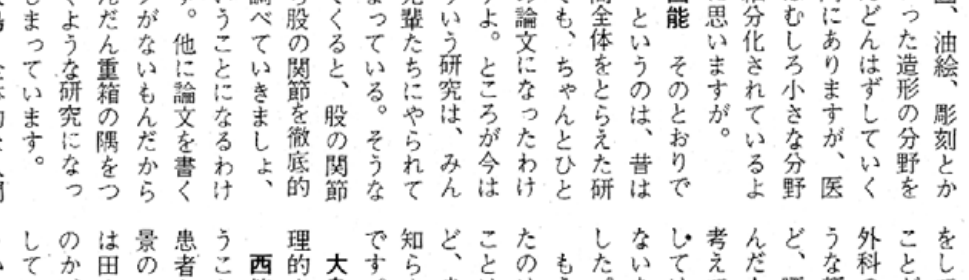 、油絵、彫刻とか
った造形の分野を
どんはずしていく
にありますが、医
はむしろ小さな分野
分化されているよ
思いますが。
能　そのとおりで
というのは、昔は
間全体をとらえた研
でも、ちゃんとひと
の論文になったわけ
すよ。ところが今は
ういう研究は、みん
先輩たちにやられて
なっている。そうな
てくると、股の関節
股の関節を徹底的
調べていきましょ、
いうことになるわけ
す。他に論文を書く
がないもんだから
んだん重箱の隅をつ
くような研究になっ
しまっています。
をして
こと
外科
うな
ど、
んだ
考えて
しては
ない
した。
もう
たの
こと
ど、
知ら
です。
大
理的
西
うこ
患者
景の
は田
のか
して